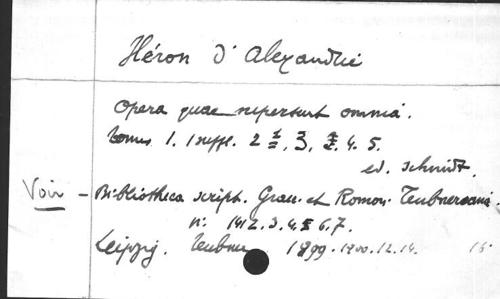 Héron d'Alexandrie
Opera quae supersunt omnia.
tomus 1. 1 suppl. 2 3, 4. 5.
ed. Schmidt.
Voir - Bibliotheca script. Graec. et Roman. Teubneriana.
n: 1412. 3. 4. 5 6. 7.
Leipzig. Teubner 1899. 1900. 12. 14. 15